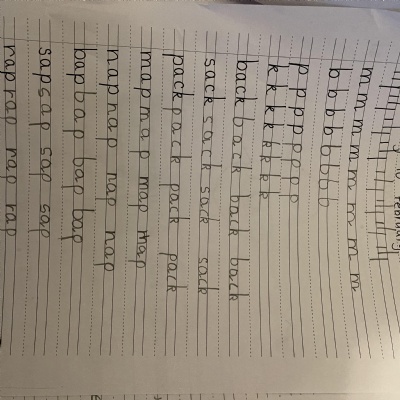 February
m m m m m m m m m
b b b b b b b b
p p p p p p p p
k k k k k k k k
back back back back
sack sack sack sack
pack pack pack pack
map map map map
nap nap nap nap
bap bap bap bap
sap sap sap sap
rap rap rap rap